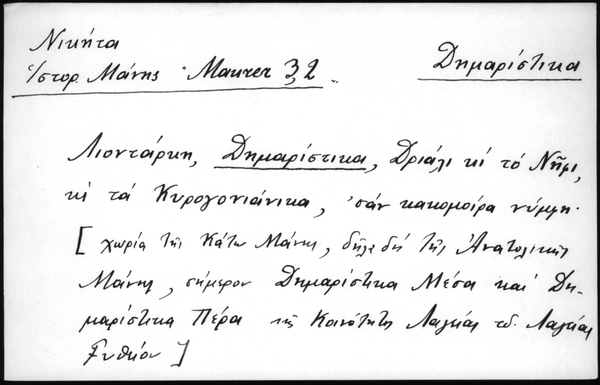 Νικήτα
Ἱστορ. Μάνης Maurer 32
Δημαρίστικα
Λιοντάρκη, Δημαρίστικα, Δριάλι κὶ τὸ Νῆμι,
κὶ τὰ Κυρογονιάνικα, 'σὰν κακομοίρα νύμφη.
[ χωρία τῆς Κάτω Μάνης, δῆλ. δὴ τῆς Ἀνατολικῆς
Μάνης, σήμερον Δημαρίστικα Μέσα καὶ Δη-
μαρίστικα Πέρα τῆς Κοινότητος Λαγίας τ. δ. Λαγίας
Γυθείου ]